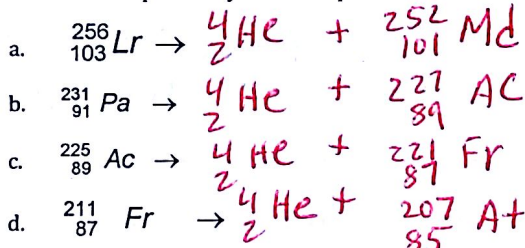 a. ²⁵⁶₁₀₃Lr → ⁴₂He + ²⁵²₁₀₁Md
b. ²³¹₉₁Pa → ⁴₂He + ²²⁷₈₉AC
c. ²²⁵₈₉Ac → ⁴₂He + ²²¹₈₇Fr
d. ²¹¹₈₇Fr → ⁴₂He + ²⁰⁷₈₅At